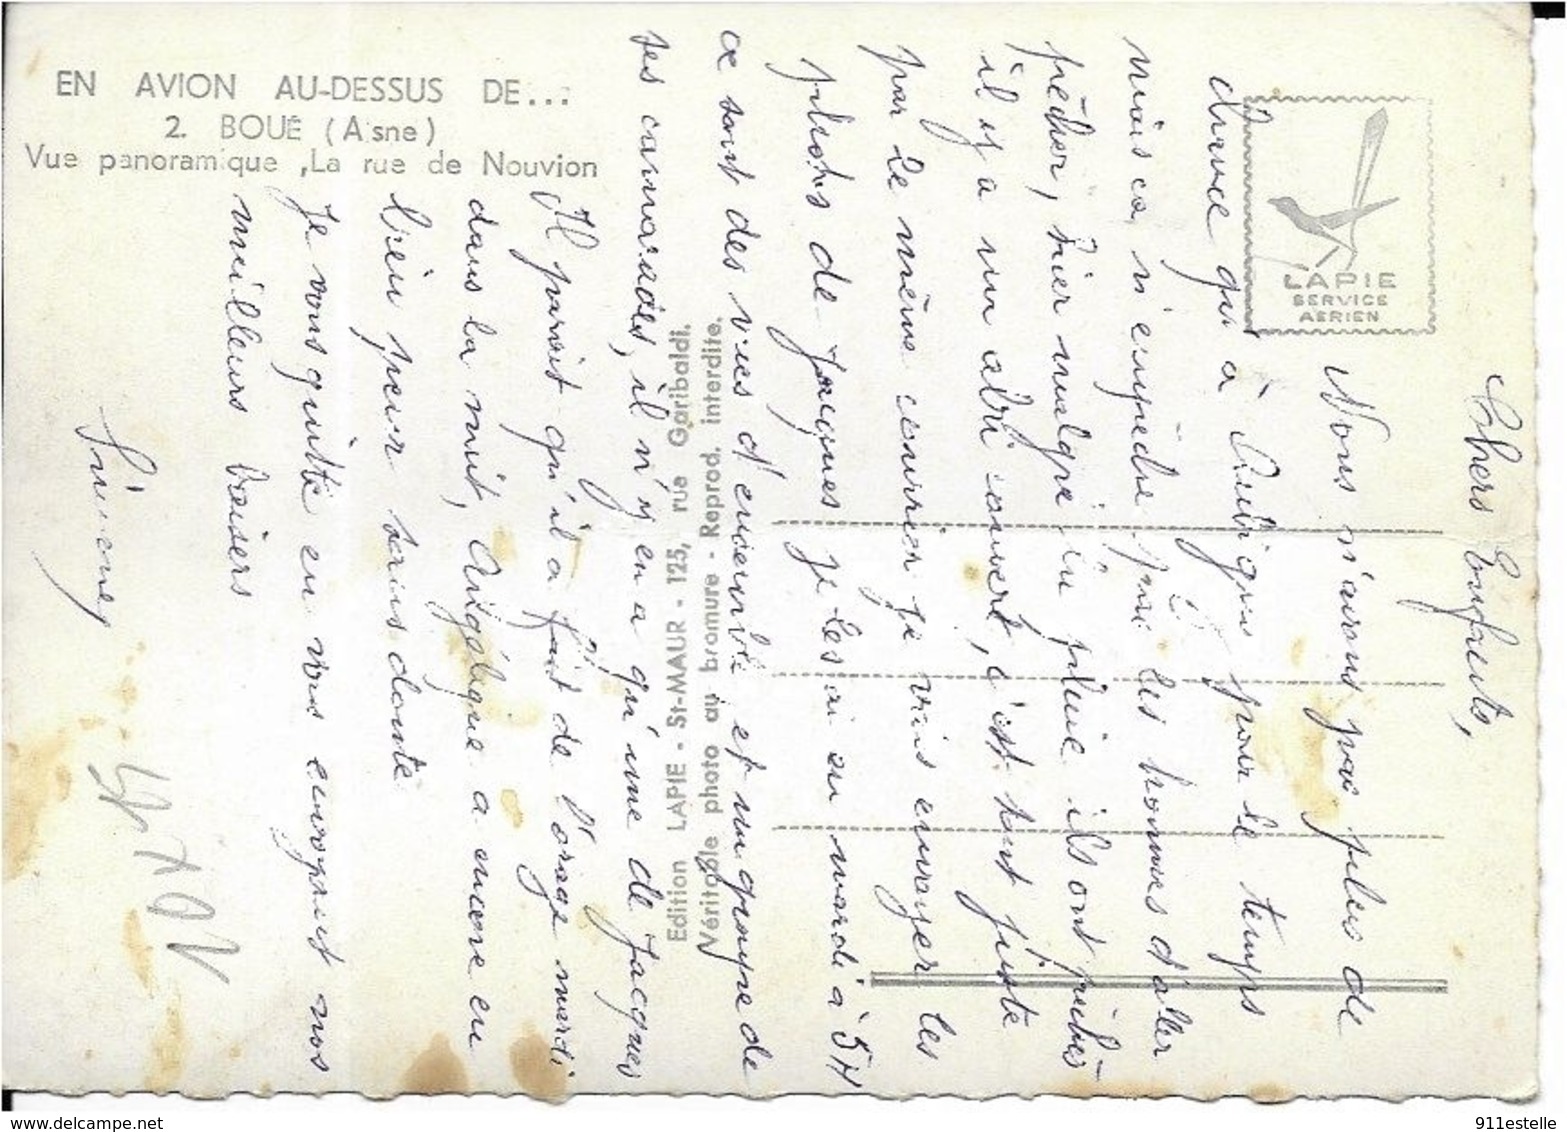 EN AVION AU-DESSUS DE...
2. BOUÉ (Aisne)
Vue panoramique, La rue de Nouvion
LAPIE
SERVICE
AERIEN
Edition LAPIE - St-MAUR - 125, rue Garibaldi.
Véritable photo au bromure - Reprod. interdite.
Chers Enfants,
Nous n'avons pas plus de
chance qu' à Aubigny pour le temps
mais ca n'empêche pas les hommes d'aller
pêcher, hier malgré la pluie ils ont pêché
il y a un abri couvert, c'est tout juste
par le même courrier je vais envoyer les
photos de Jacques je les ai eu mardi à 5H
ce sont des vues d'ensemble et un groupe de
ses camarades, il n'y en a qu'une de Jacques
Il parait qu'il a fait de l'orage mardi
dans la nuit, Angélique a encore eu
bien peur sans doute
Je vous quitte en vous envoyant nos
meilleurs baisers
911estelle
www.delcampe.net